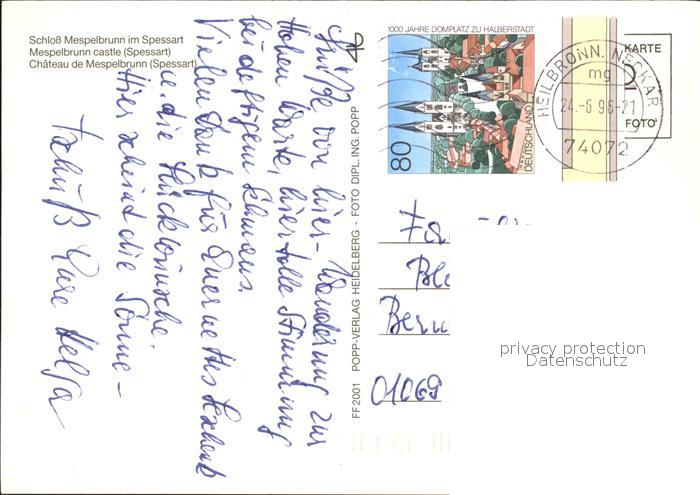 Schloß Mespelbrunn im Spessart
Mespelbrunn castle (Spessart)
Château de Mespelbrunn (Spessart)
Grüße von hier - Wanderung zur
Hohen Warte, hier tolle Stimmung
bei deftigem Schmaus.
Vielen Dank für Euer nettes Geschenk
u. die Glückwünsche.
Hier scheint die Sonne -
Tschüß Eure Helga
FF2001 POPP-VERLAG HEIDELBERG - FOTO DIPL.ING. POPP
1000 JAHRE DOMPLATZ ZU HALBERSTADT
80
DEUTSCHLAND
HEILBRONN, NECKAR
mg
24.-6.96-21
74072
KARTE
FOTO
Fa
Ble
Bern
01069
privacy protection
Datenschutz